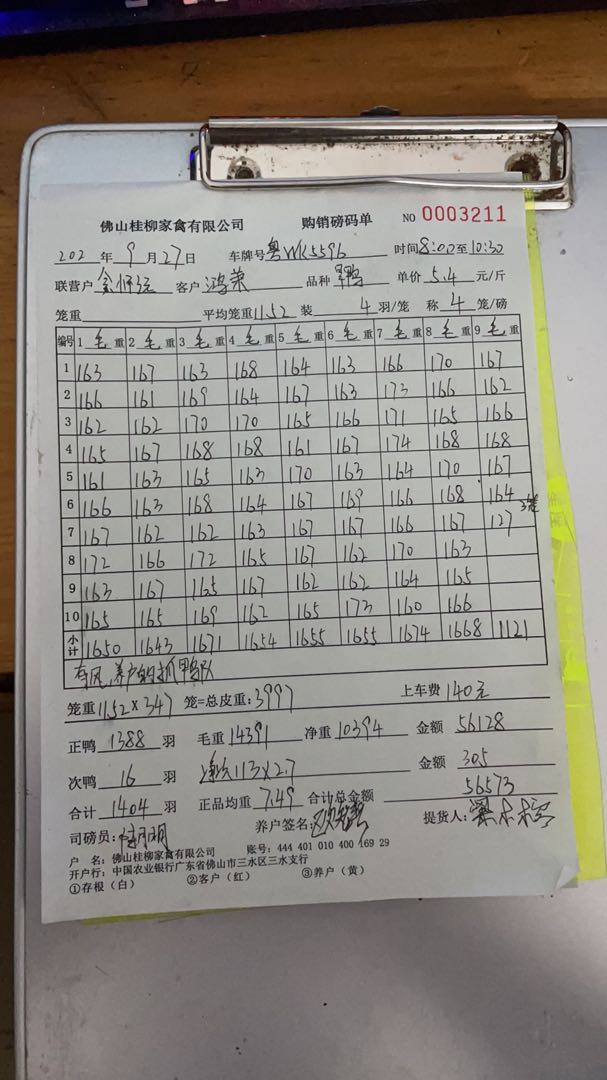 佛山桂柳家禽有限公司 购销磅码单 NO 0003211
202 年 9 月 27 日 车牌号 粤WK5596 时间 8:00 至 10:30
联营户 客户 鸿荣 品种 旱鸭 单价 5.4 元/斤
笼重 平均笼重 11.52 装 4 羽/笼 称 4 笼/磅
编号 1 毛重 2 毛重 3 毛重 4 毛重 5 毛重 6 毛重 7 毛重 8 毛重 9 毛重
1 163 167 163 168 164 163 166 170 167
2 166 161 169 164 167 163 173 166 162
3 162 162 170 170 165 166 171 165 166
4 165 167 168 168 161 167 174 168 168
5 161 163 165 163 170 163 164 170 167
6 166 163 168 164 167 169 166 168 164
7 167 162 162 163 167 167 166 167 127 3笼
8 172 166 172 165 167 162 170 163
9 163 167 165 167 162 162 164 165
10 165 165 169 162 165 173 160 166
小计 1650 1643 1671 1654 1655 1655 1674 1668 1121
有风,养户的抓鸭队
笼重 11.52×347 笼=总皮重: 3997 上车费 140元
正鸭 1388 羽 毛重 14391 净重 10394 金额 56128
次鸭 16 羽 113×2.7 金额 305
合计 1404 羽 正品均重 7.49 合计总金额 56573
司磅员: 养户签名: 提货人:
户 名: 佛山桂柳家禽有限公司 账号: 444 401 010 400 169 29
开户行: 中国农业银行广东省佛山市三水区三水支行
①存根(白) ②客户(红) ③养户(黄)